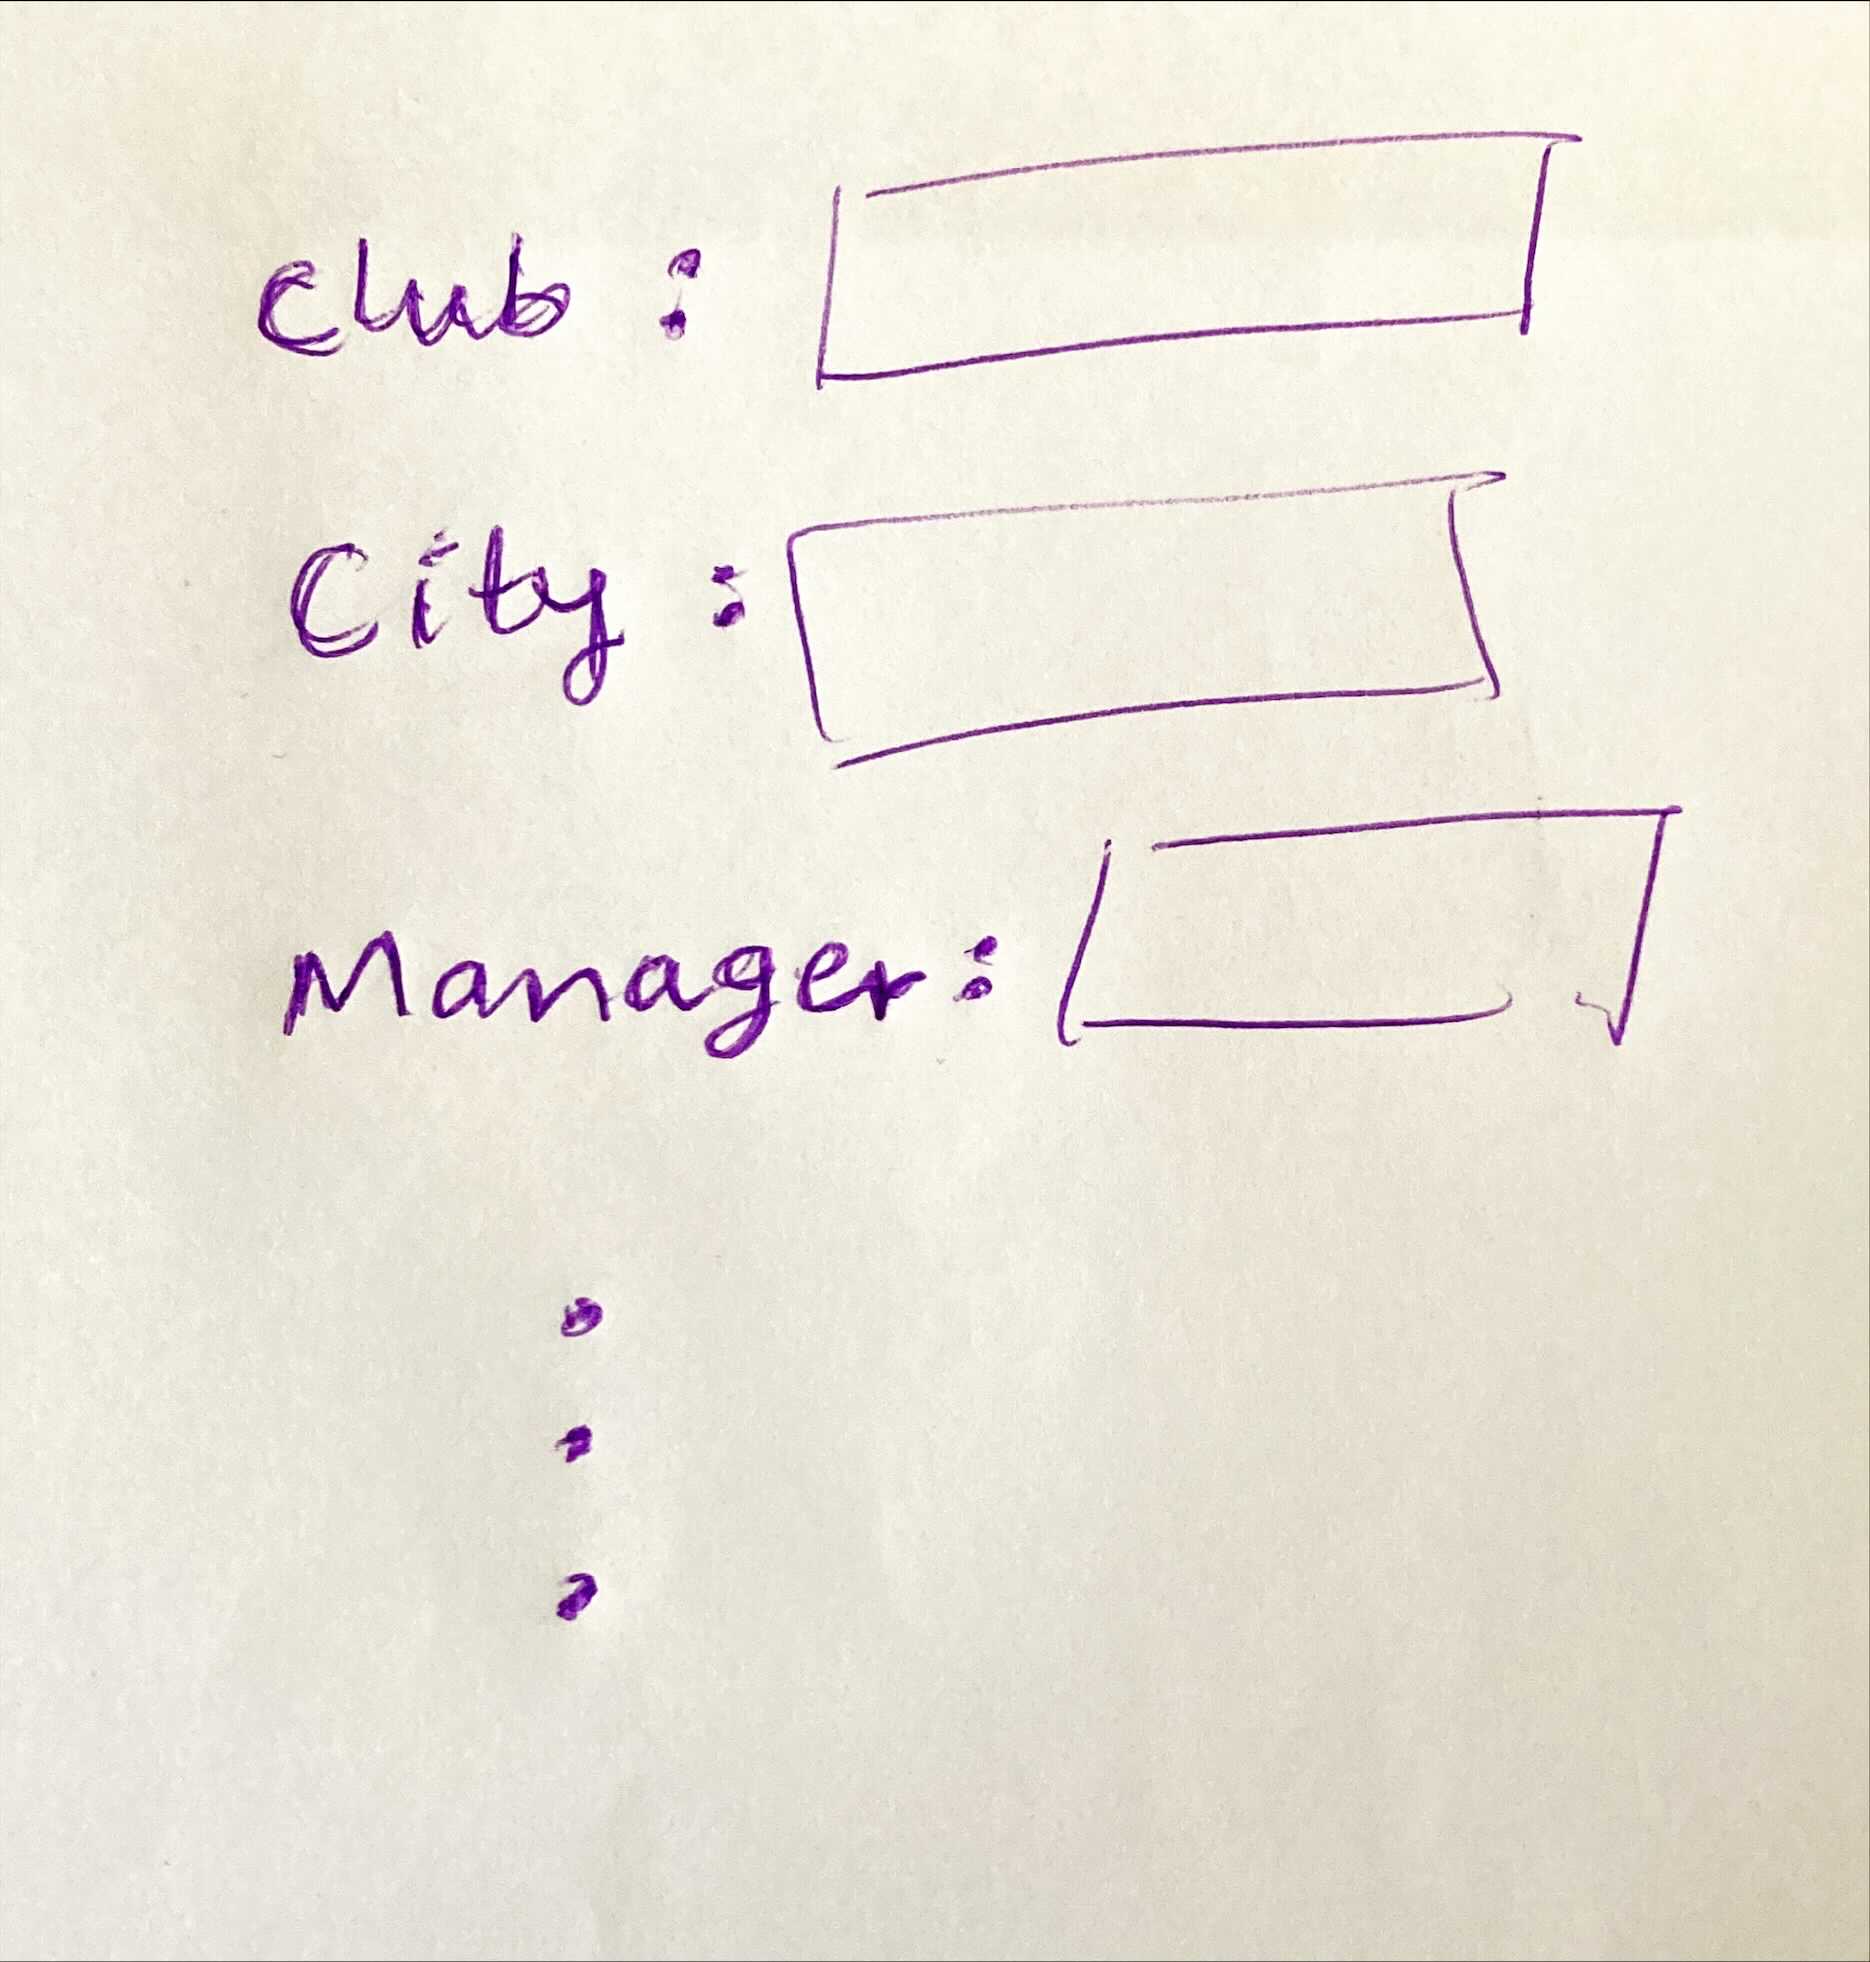 Club :
City :
Manager :